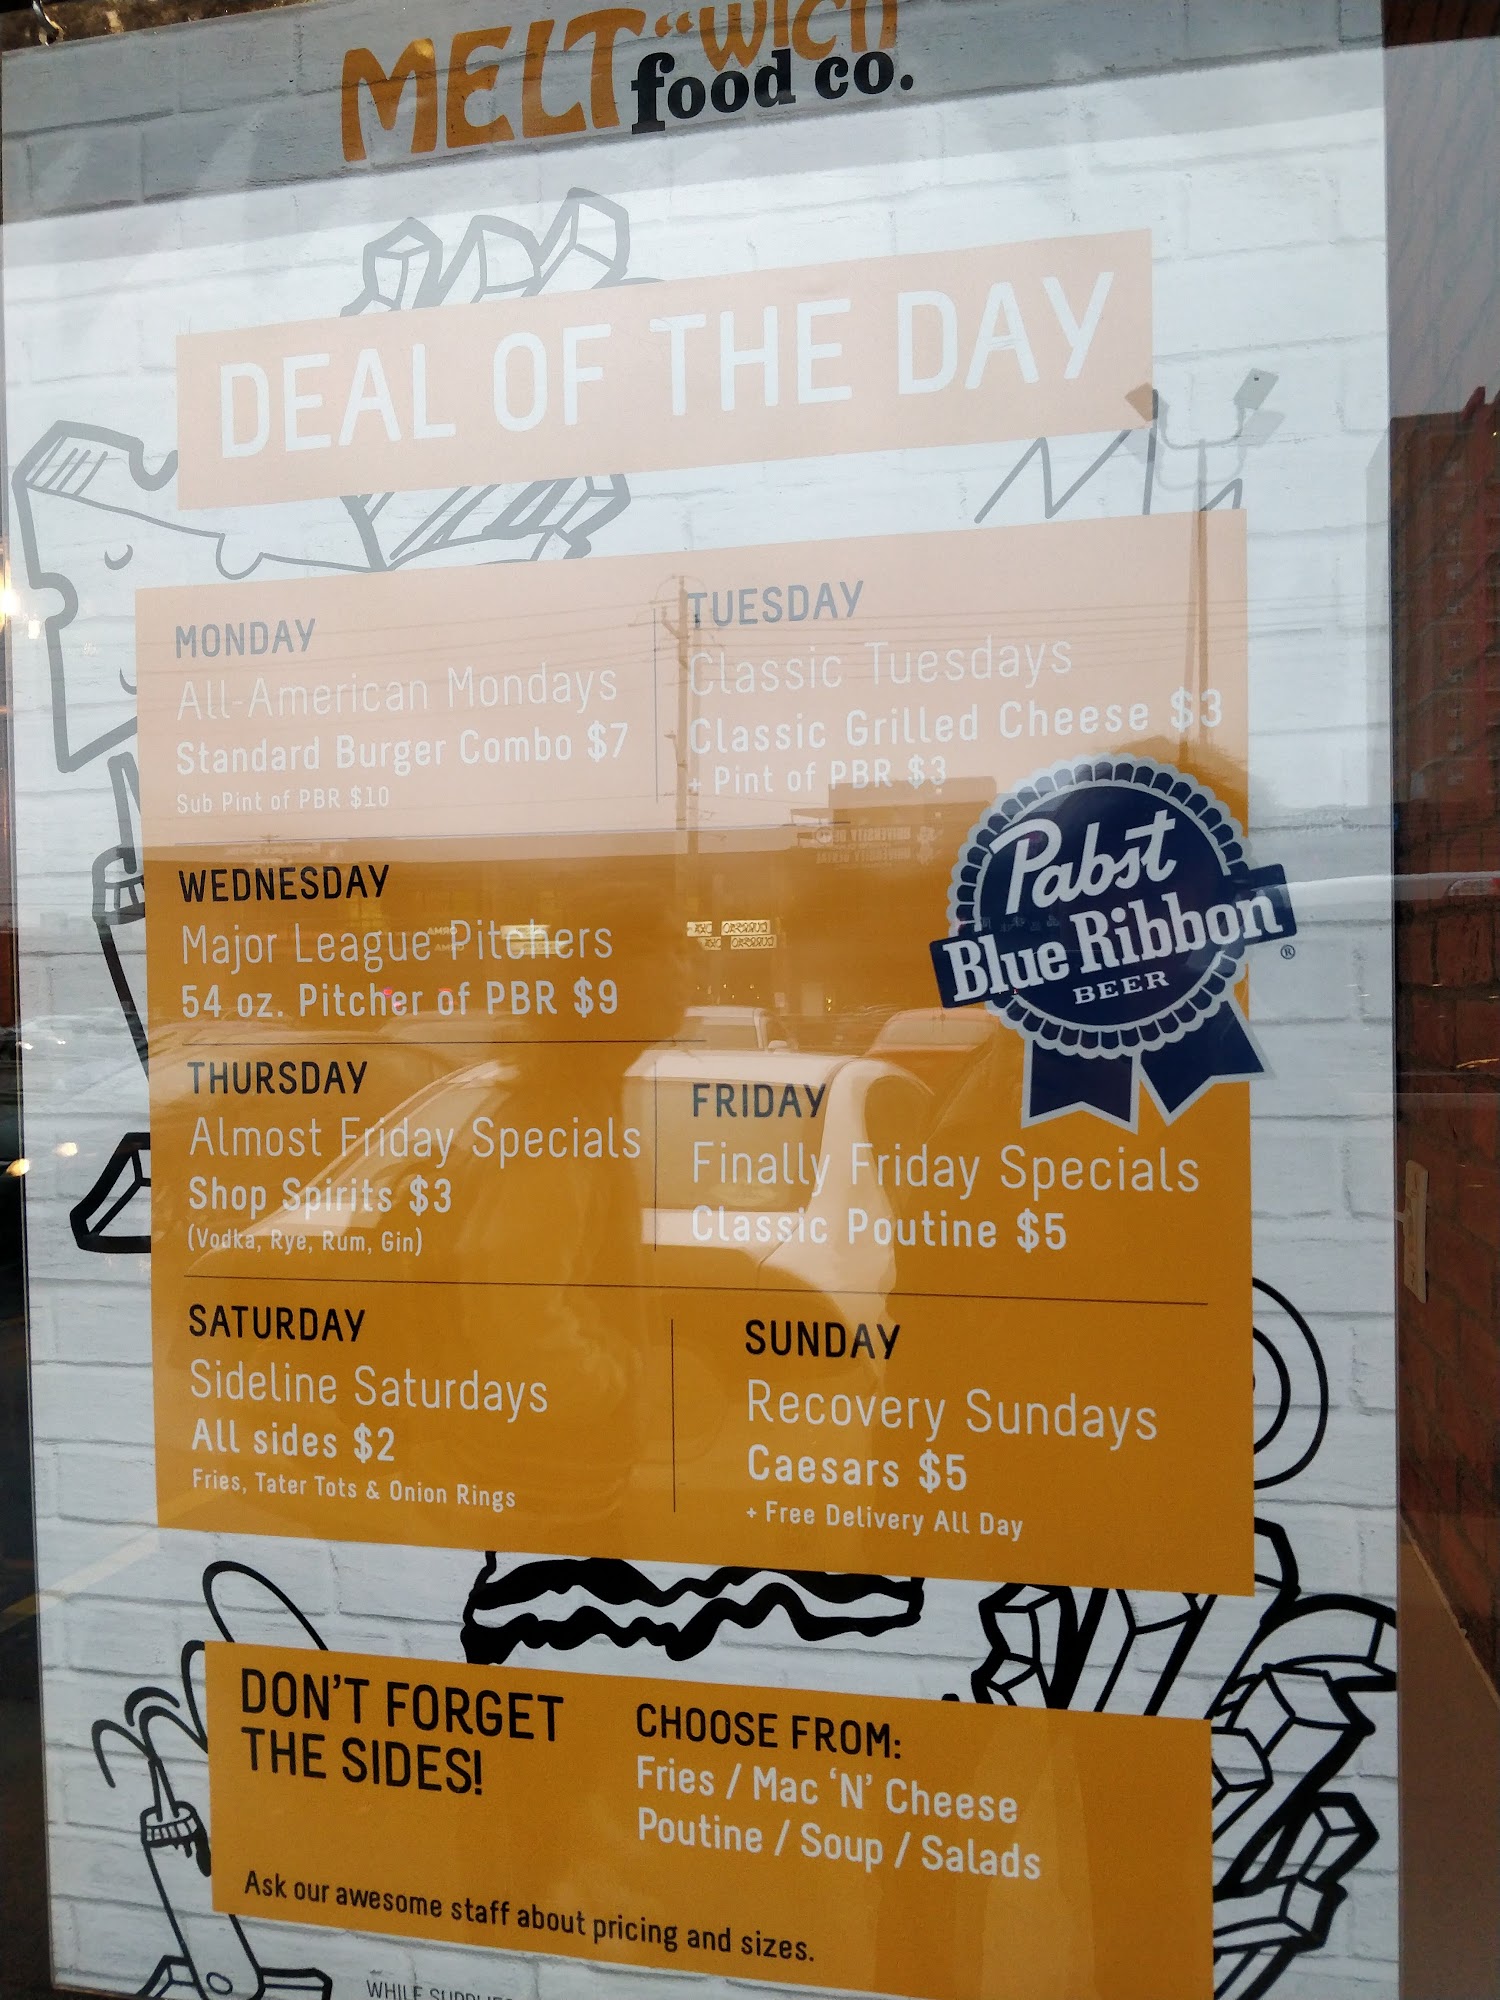 MELT "WICH
food co.
DEAL OF THE DAY
MONDAY
All-American Mondays
Standard Burger Combo $7
Sub Pint of PBR $10
TUESDAY
Classic Tuesdays
Classic Grilled Cheese $3
+ Pint of PBR $3
Pabst
Blue Ribbon ®
BEER
WEDNESDAY
Major League Pitchers
54 oz. Pitcher of PBR $9
THURSDAY
Almost Friday Specials
Shop Spirits $3
(Vodka, Rye, Rum, Gin)
FRIDAY
Finally Friday Specials
Classic Poutine $5
SATURDAY
Sideline Saturdays
All sides $2
Fries, Tater Tots & Onion Rings
SUNDAY
Recovery Sundays
Caesars $5
+ Free Delivery All Day
DON'T FORGET
THE SIDES!
CHOOSE FROM:
Fries / Mac 'N' Cheese
Poutine / Soup / Salads
Ask our awesome staff about pricing and sizes.
WHILE